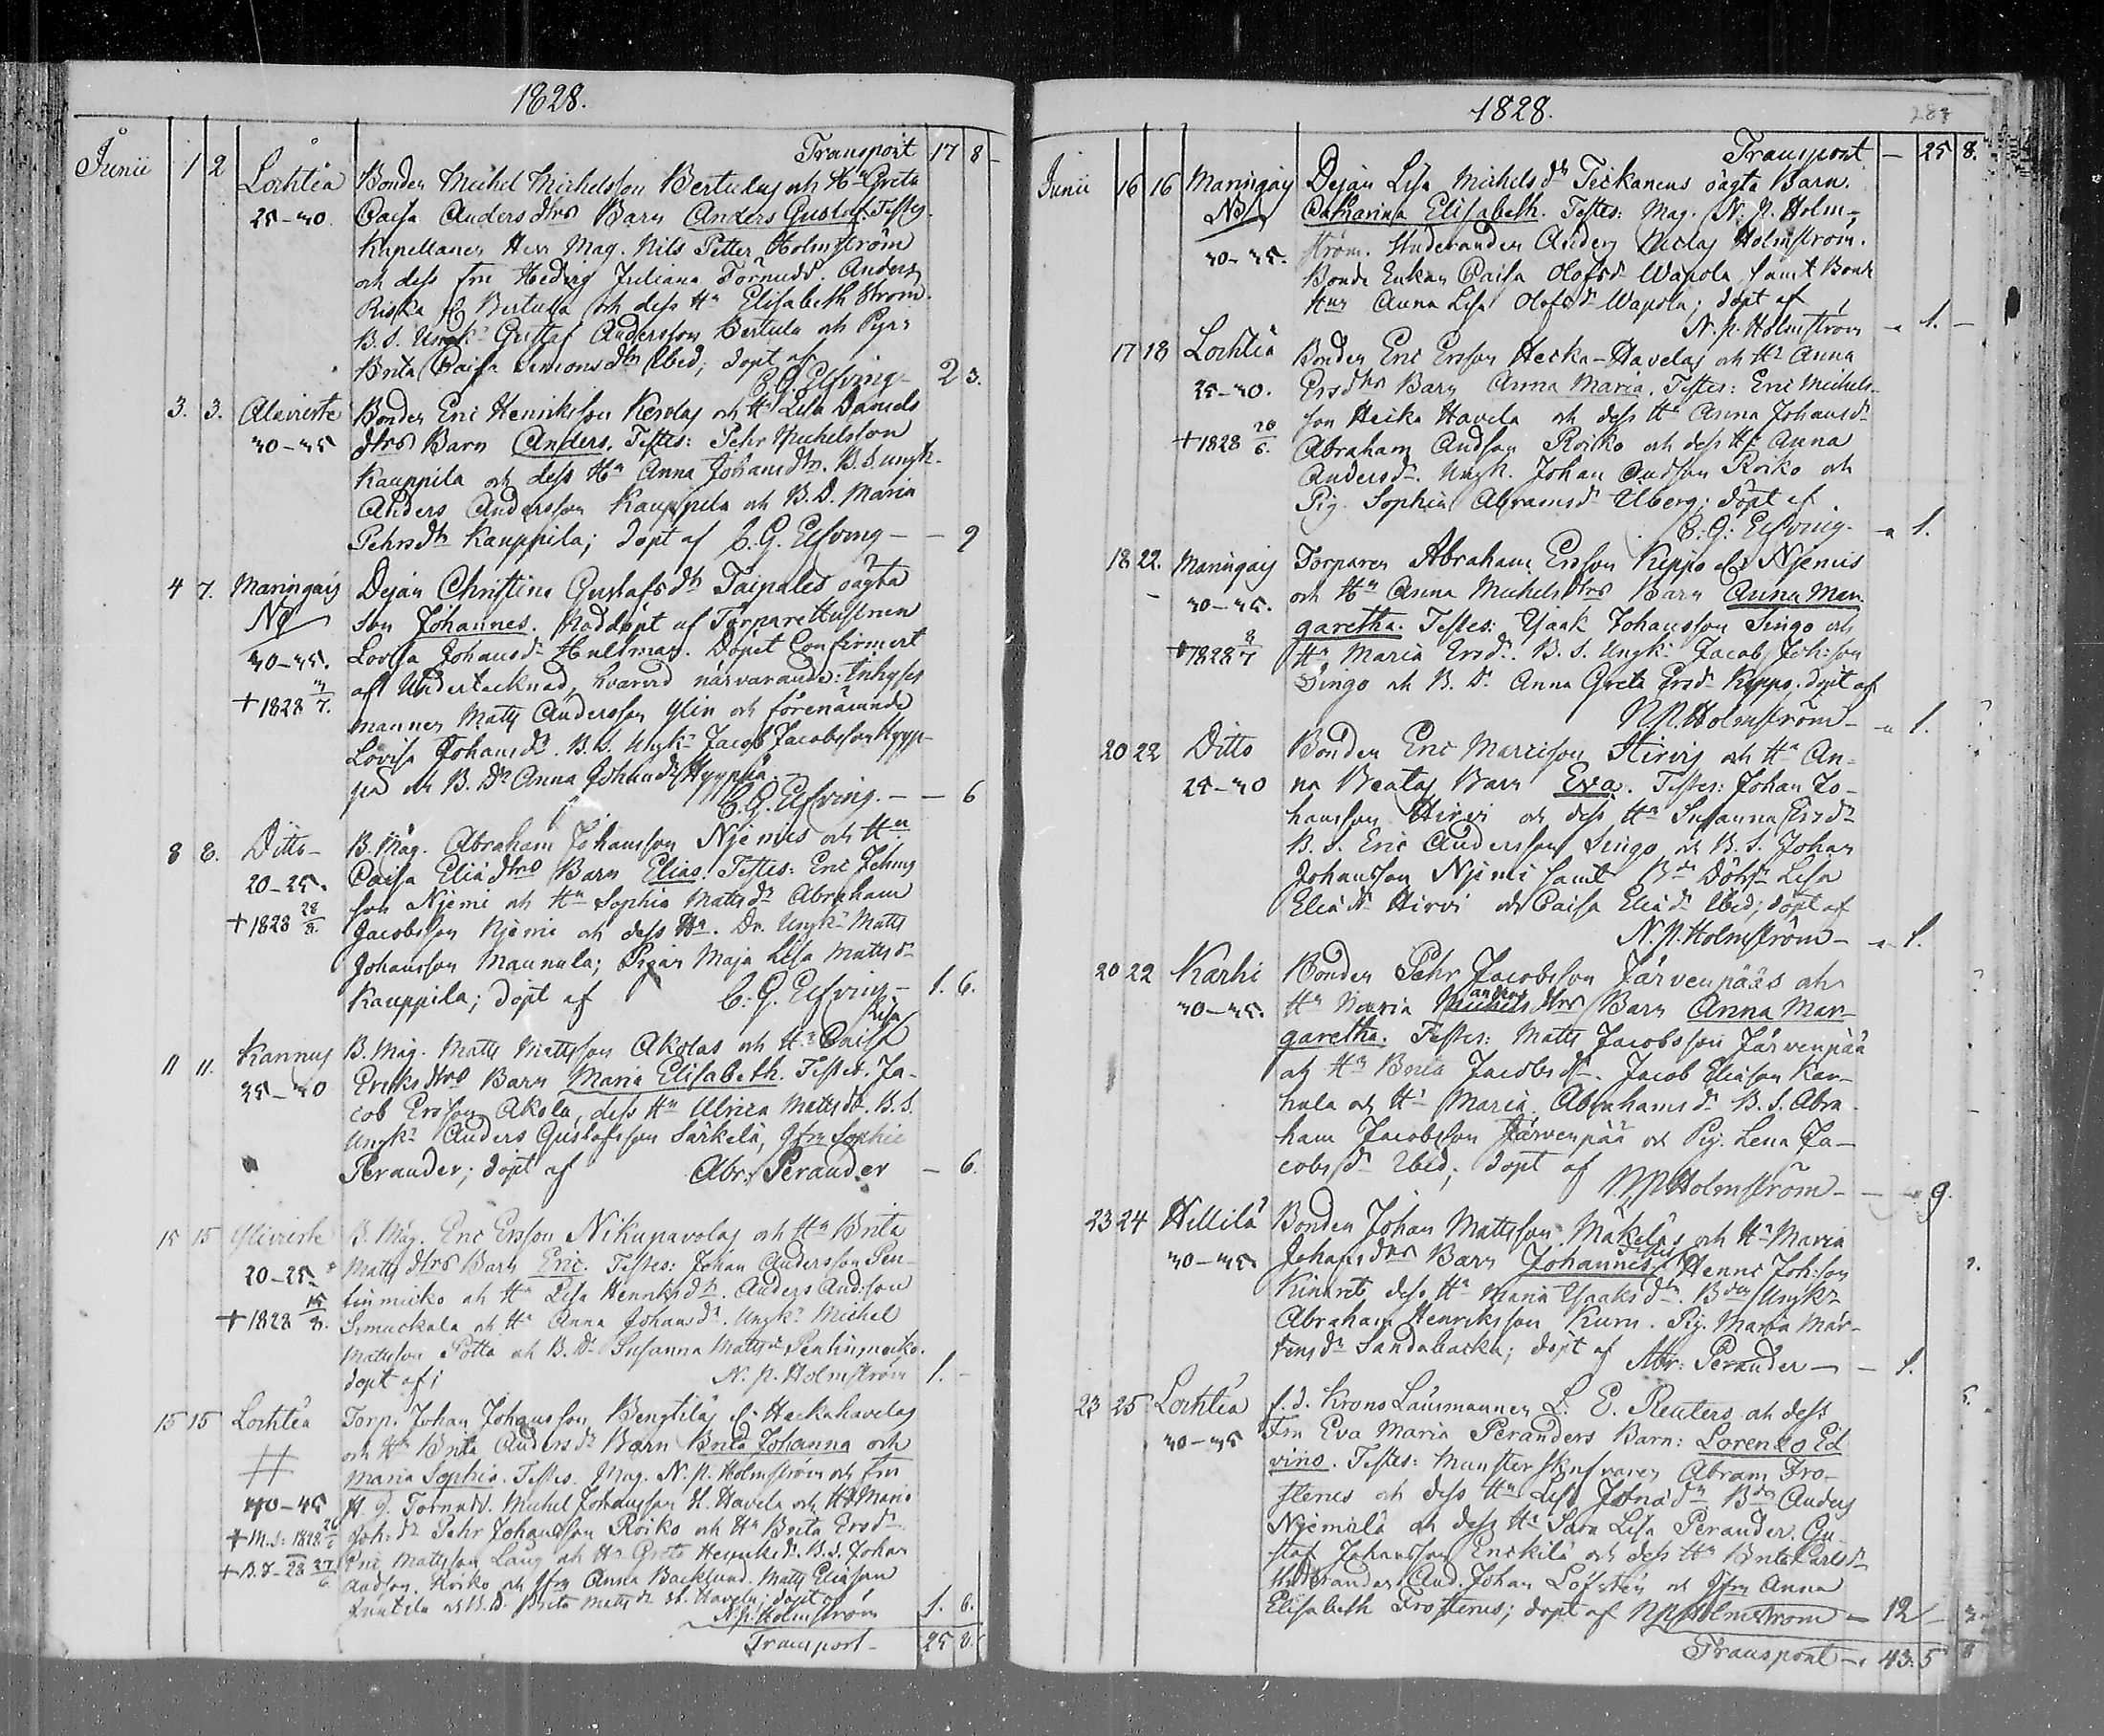 1828.
Transport 17 8
Junii 1 2 Lochteå Bonden Michel Michelsson Bertulas och Hu Greta
25-30. Caisa Andersdtrs Barn Anders Gustaf. Testes.
Kapellanen Herr Mag. Nils Petter Holmström
och dess Fru Hedvig Juliana Törnudd. Anders
Riska Bertula och dess Hu Elisabeth Ström.
B. S. Ungk. Gustaf Andersson Bertula och Pigan
Brita Caisa Simonsdtr Ibid; döpt af
C. G. Elfving 2 3.
3. 3. Alaviirte Bonden Eric Henriksson Kerolas och Hu Lisa Daniels
30-35 dtrs Barn Anders. Testes: Pehr Michelsson
Kauppila och dess Hu Anna Johansdtr. B. S. ungk.
Anders Andersson Kauppila och B. D. Maria
Pehrsdtr Kauppila; döpt af C. G. Elfving - - 9
4 7. Maringais Dejan Christina Gustafsdtr Taipales oägta
NB son Johannes. Nöddöpt af TorpareHustrun
30-35. Lovisa Johansdr Hultman. Döpet Confirmert
af Undertecknad, hvarvid närvarande: Inhyses
+ 1828 /7. mannen Matts Andersson Ylin och förenämnde
Lovisa Johansdr. B. S. Ungk. Jacob Jacobsson Hyyp-
pä och B. Dr Anna Johansdr Hyyppä
C. G. Elfving. - - 6
8 8. Ditto B. Måg. Abraham Johansson Njemis och Hu
20-25. Caisa Eliædtrs Barn Elias. Testes: Eric Johans
son Njemi och Hu Sophia Mattsdr Abraham
+ 1828 28/8. Jacobsson Njemi och dess Hu. Dr. Ungk. Matts
Johansson Maunula; Pigan Maja Lisa Mattsdr
Kauppila; döpt af C. G. Elfving - 1. 6.
Lisa
11 11. Kannus B. Måg. Matts Mattsson Akolas och Hu Caisa
35-40 Ericsdtrs Barn Maria Elisabeth. Testes. Ja-
cob Ersson Akola, dess Hu Ulrica Mattsdr. B. S.
Ungk. Anders Gustafsson Särkelä, Jfru Sophie
Perander; döpt af Abr: Perander - 6.
15 15 Yliviirte B. Måg. Eric Ersson Nikupavolas och Hu Brita
20-25. Mattsdtrs Barn Eric. Testes: Johan Andersson Pen-
tinmicko och Hu Lisa Henriksdtr. Anders Andsson
+ 1828 15/8. Simuckala och Hu Anna Johansdr. Ungk. Michel
Mattsson Potta och B. Dr Susanna Mattsdr Pentinmicko.
döpt af; N. P. Holmström 1. -
15 15 Lochteå Torp. Johan Johansson Bengtilas el. Heckahavelas
och Hu Brita Andersdr Barn Brita Johanna och
# Maria Sophia. Testes. Mag. N. P. Holmström och Fru
40-45 H. J. Törnudd. Michel Johansson H. Havela och Hu Maria
+ M.S: 1828 26/6 Joh:dr Pehr Johansson Roiko och Hu Brita Ersdr
+ B.J- 28 27/6 Eric Mattsson Lang och Hu Greta Henriksdr. B. S. Johan
Andson. Roiko och Jfru Anna Backlund. Matts Eliæson
Juntila och B. D. Brita Mattsdr H. Havela; döpt af
N. P. Holmström 1. 6.
Transport - 25 8.
1828. 287
Transport - 25 8.
Junii 16 16 Maringais Dejan Lisa Michelsdr Teckanens oägta Barn.
NB Catharina Elisabeth. Testes: Mag. N. P. Holm-
30-35. ström. Studeranden Anders Niclas Holmström.
Bonde Enkan Caisa Olofsdr Wapola samt Bonde
Hun Anna Lisa Olofsdr Wapola; döpt af
N. P. Holmström - 1. -
17 18 Lochteå Bonden Eric Ersson Hecka-Havelas och Hu Anna
25-30. Ersdtrs Barn Anna Maria. Testes: Eric Michels-
son Hecka Havela och dess Hu Anna Johansdr
+ 1828 26/6. Abraham Andsson Roiko och dess Hu Anna
Andersdr. Ungk. Johan Andsson Roiko och
Pig. Sophia Abramsdr Uberg; döpt af
C. G. Elfving. - 1.
18 22. Maringais Torparen Abraham Ersson Kippo el. Njemis
30-35. och Hu Anna Michelsdtrs Barn Anna Mar-
garetha. Testes: Isaak Johansson Singo och
+ 1828 8/7 Hu Maria Ersdr. B. S. Ungk. Jacob Joh:son
Singo och B. Dr Anna Greta Ersdr Kippo. döpt af
N. P. Holmström - 1.
20 22 Ditto Bonden Eric Marcisson Hirvis och Hu An-
25-30 na Beatas Barn Eva. Testes: Johan Jo-
hansson Hirvi och dess Hu Susanna Ersdr
B. S. Eric Andersson Singo och B. S. Johan
Johansson Njemi samt Bde Döttr. Lisa
Eliædr Hirvi och Caisa Eliædr Ibid; döpt af
N. P. Holmström - 1.
20 22 Karhi Bonden Pehr Jacobsson Järvenpääs och
30-35. Hu Maria Michelsdtrs Barn Anna Mar-
garetha. Testes: Matts Jacobsson Järvenpää
och Hu Brita Jacobsdr. Jacob Eliæson Kar-
hula och Hu Maria Abrahamsdr B. S. Abra-
ham Jacobsson Järvenpää och Pig. Lena Ja-
cobsdr Ibid; döpt af N. P. Holmström - 9.
23 24 Hillilä Bonden Johan Mattsson Mäkeläs och Hu Maria
30-35. Johansdtrs Barn Johannes. Testes Henric Joh:son
Kinaret, dess Hu Maria Isaaksdr. Bden Ungk.
Abraham Henriksson Kuru. Pig. Maria Mår-
tensdr Sandabacka; döpt af Abr: Perander - 1.
23 25 Lochteå f. d. Krono Länsmannen L. E. Reuters och dess
30-35 Fru Eva Maria Peranders Barn: Lorenzo Ed
vino. Testes: Munsterskrifvaren Abram Fro-
sterus och dess Hu Lisa Bden Anders
Njemelä och dess Hu Sara Lisa Perander. Gu
staf Johansson Enckilä och dess Hu Brita Carlsdr
Studeranden And. Johan Löfsten och Jfru Anna
Elisabeth Frosterus; döpt af N. P. Holmström - 12
Transport - 43. 5